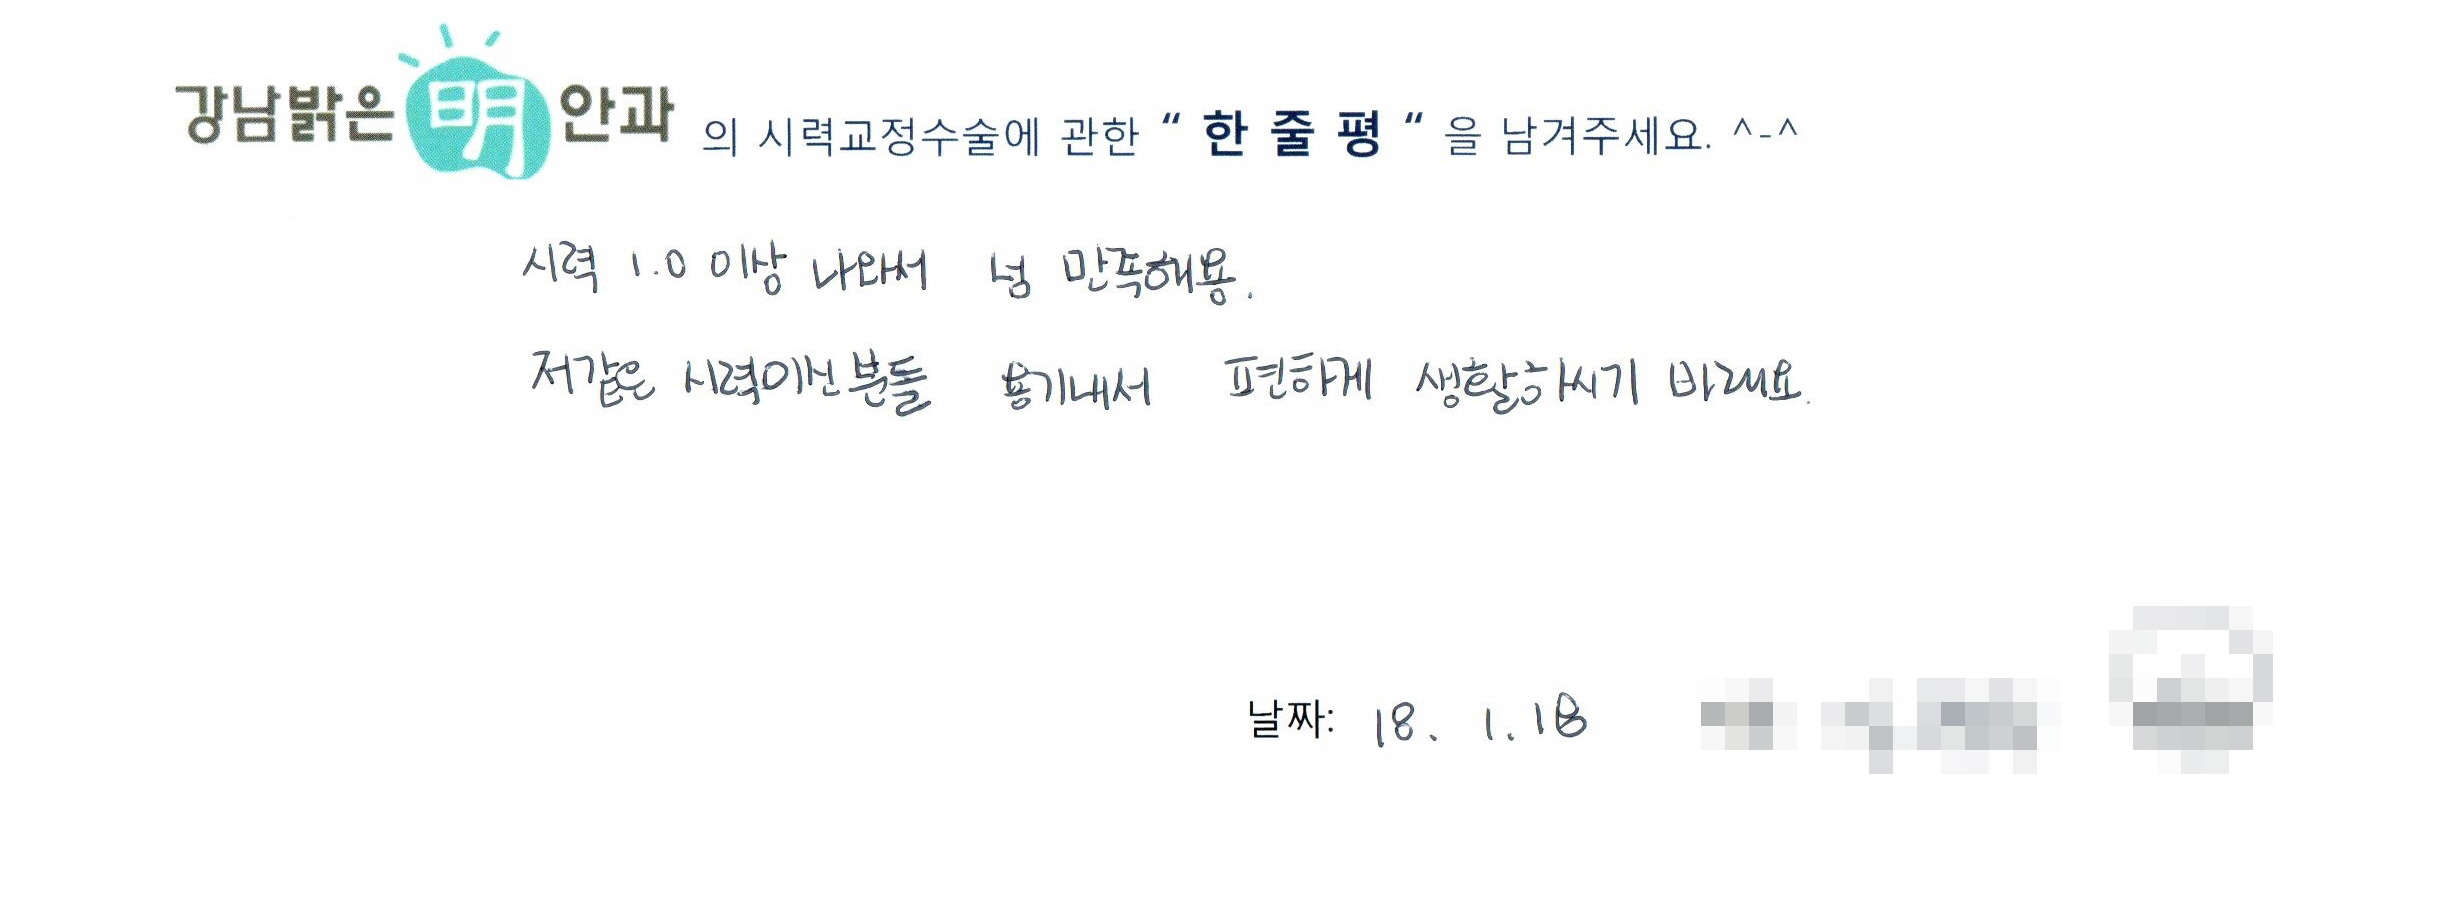 강남밝은 明 안과 의 시력교정수술에 관한 “ 한 줄 평 “ 을 남겨주세요. ^-^
시력 1.0 이상 나와서 넘 만족해용.
저같은 시력이신분들 용기내서 편하게 생활하시기 바래요.
날짜: 18. 1. 18